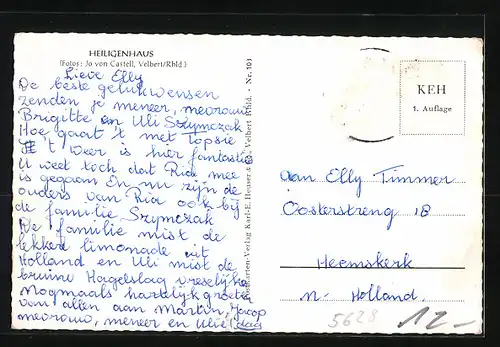 HEILIGENHAUS
(Fotos: Jo von Castell, Velbert/Rhld.)
Lieve Elly
De beste gelukwensen
zenden je meneer, mevrouw
Brigitte en Uli Szymczak
Hoe gaat 't met Topsie
't Weer is hier fantastis
U weet toch dat Ria mee
is gegaan En nu zijn de
ouders van Ria ook bij
de familie Szymczak
De familie mist de
lekkere limonade uit
Holland en Uli mist de
bruine Hagelslag vreselijk
Nogmaals hartelijk groeten
van allen aan Martin, Jaap
mevrouw, meneer en Ulie
Karten-Verlag Karl-E. Heuser & Velbert Rhld. • Nr. 101
KEH
1. Auflage
aan Elly Timmer
Oosterstreng 18
Heemskerk
N-Holland.
5628
12-